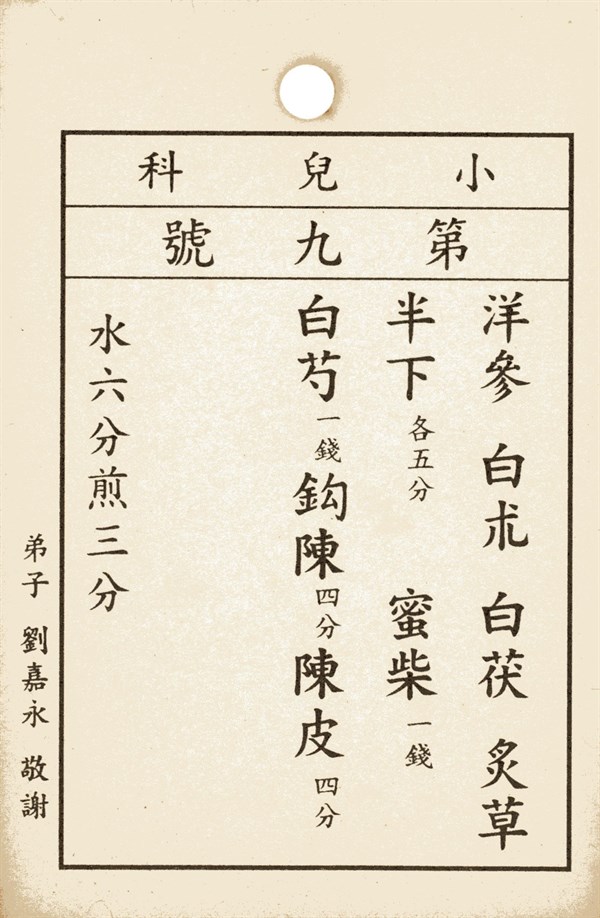 小兒科
第九號
洋參 白朮 白茯 炙草
半下 各五分 蜜柴 一錢
白芍 一錢 鈎陳 四分 陳皮 四分
水六分煎三分
弟子 劉嘉永 敬謝